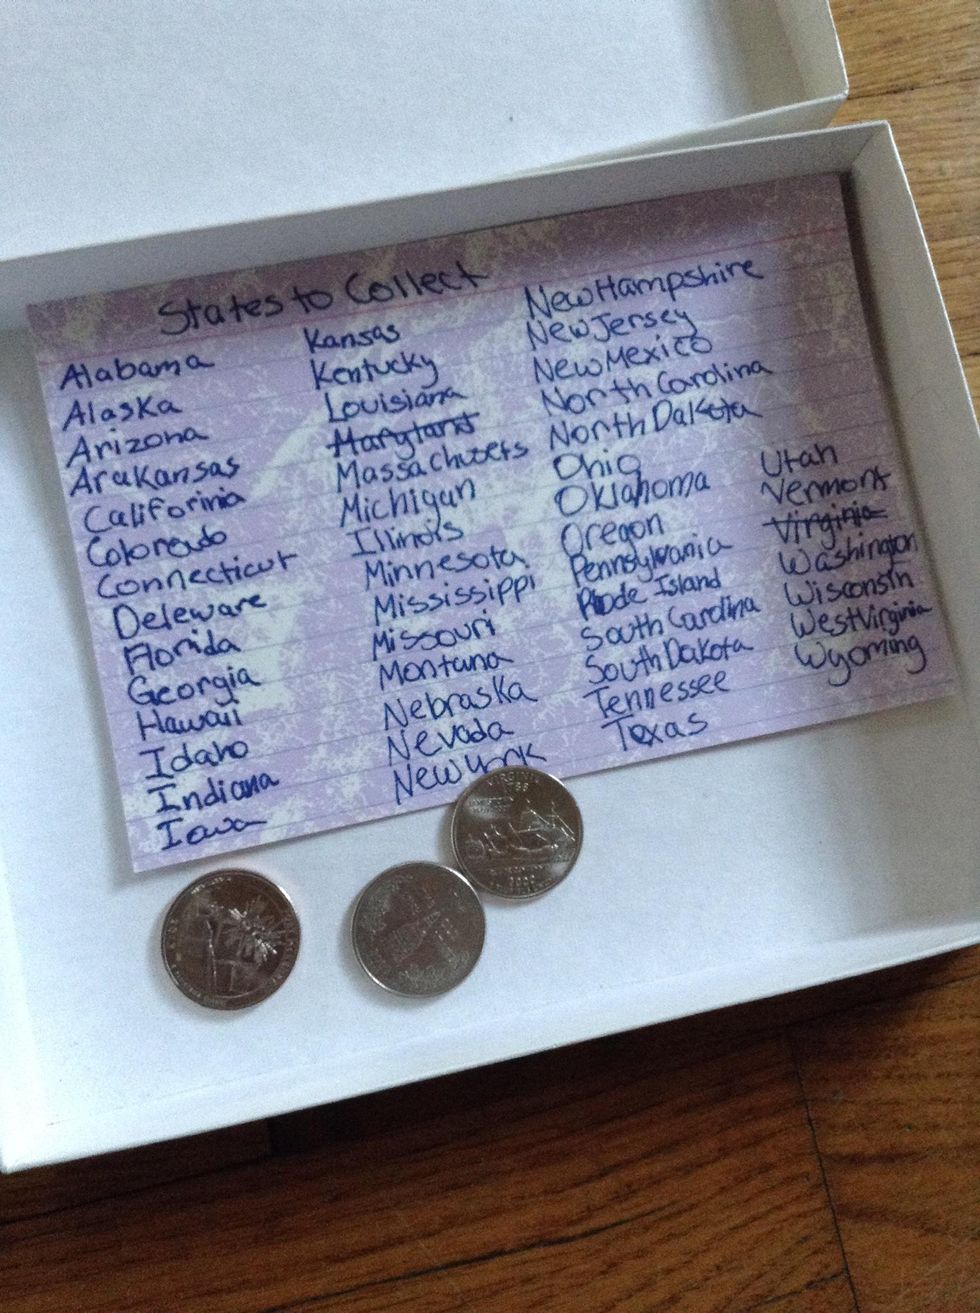 States to Collect
Alabama
Alaska
Arizona
Arakansas
Califorinia
Colorado
Connecticut
Deleware
Florida
Georgia
Hawaii
Idaho
Indiana
Iowa
Kansas
Kentucky
Louisiana
Maryland
Massachusets
Michigan
Illinois
Minnesota
Mississippi
Missouri
Montana
Nebraska
Nevada
New York
New Hampshire
New Jersey
New Mexico
North Carolina
North Dakota
Ohio
Oklahoma
Oregon
Pennsylvania
Rhode Island
South Carolina
South Dakota
Tennessee
Texas
Utah
Vermont
Virginia
Washington
Wisconsin
West Virginia
Wyoming
VIRGINIA
1788
2000